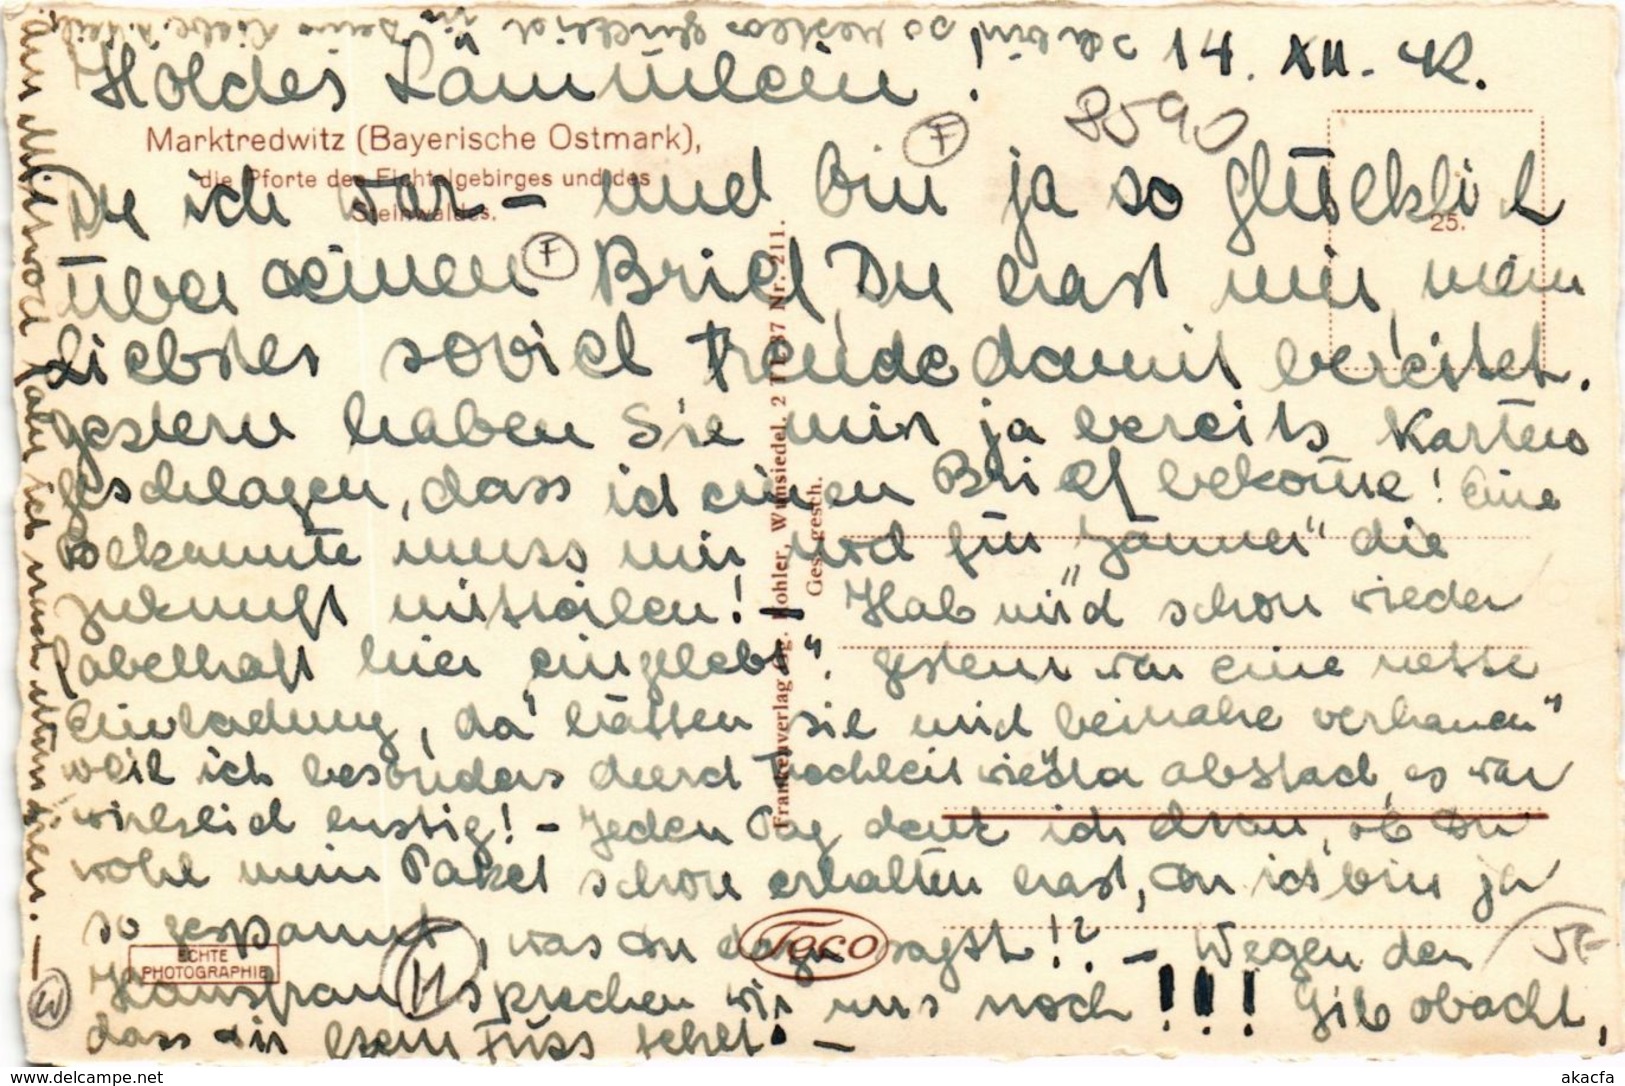 14. XII. 42.
Holdes Lämmlein!
8590
F
Marktredwitz (Bayerische Ostmark),
die Pforte des Fichtelgebirges und des
Steinwaldes.
25.
ich war – und bin ja so glücklich
über deinen Brief, Du hast mir mein
F
Liebstes soviel Freude damit bereitet.
gestern haben Sie mir ja bereits Karten
geschlagen, dass ich einen Brief bekomme! Eine
Bekannte muss mir und für "Jänner" die
Zukunft mitteilen! – Hab mich schon wieder
fabelhaft hier "eingelebt". gestern war eine nette
Einladung, da hätten sie mich beinahe "verhauen"
weil ich besonders durch Frechheit wieder abstach, es war
wirklich lustig! – Jeden Tag denk ich dran, ob Du
wohl mein Paket schon erhalten hast, und ich bin ja
so gespannt, was Du dazu sagst!? – Wegen der
Hausfrau sprechen wir uns noch!!! Gib obacht,
dass dir kein Fuss fehlt! –
Frankenverlag Kohler, Wunsiedel. 2 TL 37 Nr. 211.
Ges. gesch.
ECHTE
PHOTOGRAPHIE
Toco
H
W
am Mittwoch fahr ich nach München. –
Ich bin so restlos glücklich
www.delcampe.net
akacfa